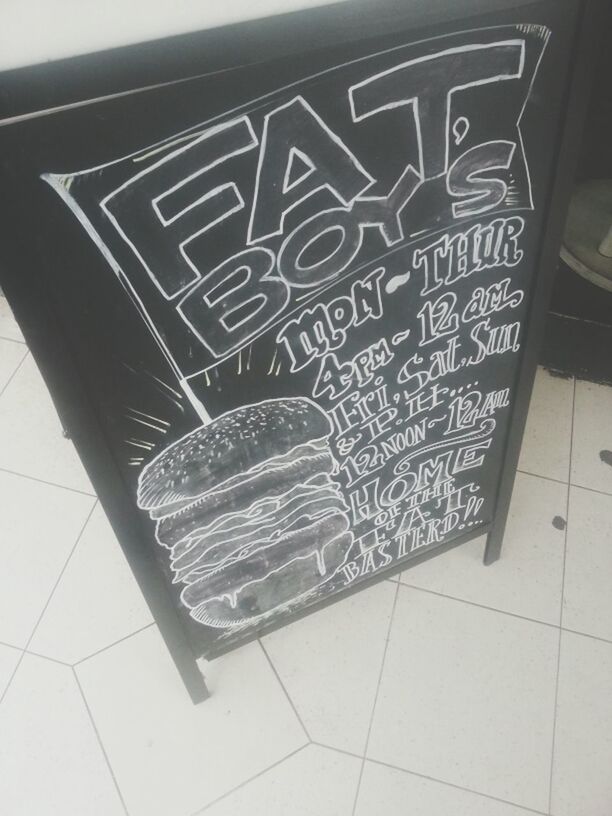 FAT
BOY'S
MON~THUR
4PM~12am
Fri, Sat, Sun
& P.H....
12NOON~12AM
HOME
OF THE
F.A.T.
BASTERD.!!